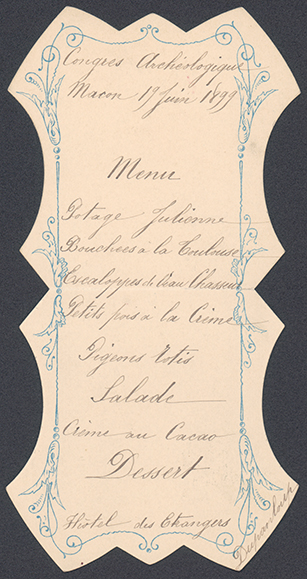 Congrès Archéologique
Macon 19 Juin 1899
Menu
Potage Julienne
Bouchées à la Toulouse
Escaloppes de Veau Chasseur
Petits pois à la Crème
Pigeons rotis
Salade
Crème au Cacao
Dessert
Hôtel des Etrangers